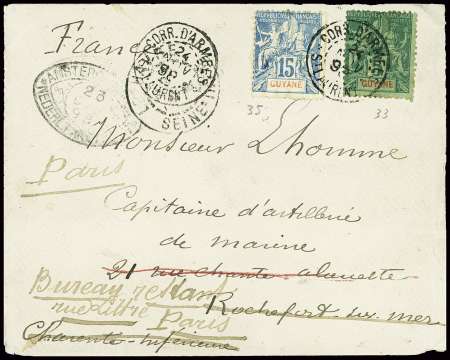 France
CORR. D'ARMÉES
RÉPUBLIQUE FRANÇAISE
15
GUYANE
RÉPUBLIQUE FRANÇAISE
GUYANE
CORR. D'ARMÉES
AMSTERDAM
23
SEINE
35
33
Monsieur Lhomme
Paris
Capitaine d'artillerie
de marine
21 rue Chante-alouette
Bureau restant
rue Littré Paris
Rochefort-sur-mer
Charente-Inférieure